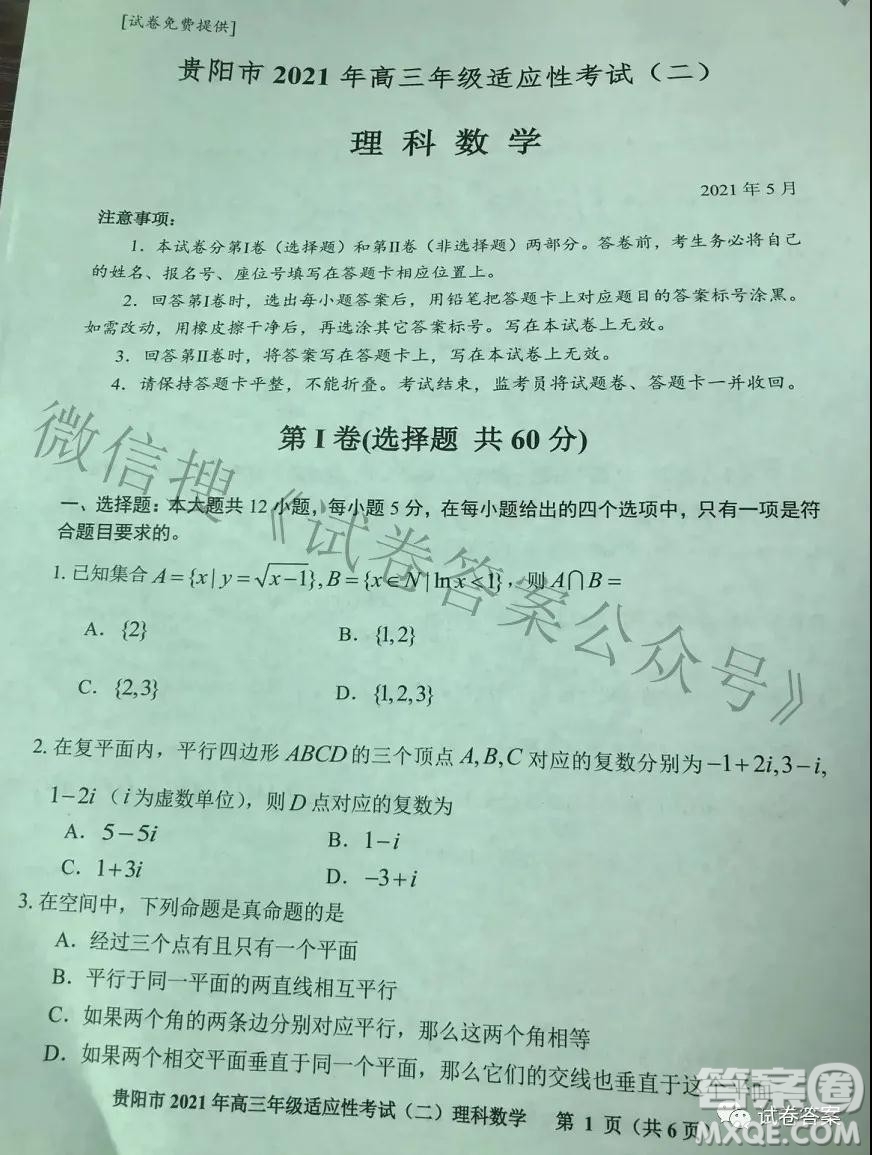 [试卷免费提供]
贵阳市 2021 年高三年级适应性考试（二）
理 科 数 学
2021 年 5 月
注意事项：
1．本试卷分第Ⅰ卷（选择题）和第Ⅱ卷（非选择题）两部分。答卷前，考生务必将自己
的姓名、报名号、座位号填写在答题卡相应位置上。
2．回答第Ⅰ卷时，选出每小题答案后，用铅笔把答题卡上对应题目的答案标号涂黑。
如需改动，用橡皮擦干净后，再选涂其它答案标号。写在本试卷上无效。
3．回答第Ⅱ卷时，将答案写在答题卡上，写在本试卷上无效。
4．请保持答题卡平整，不能折叠。考试结束，监考员将试题卷、答题卡一并收回。
第 I 卷(选择题 共 60 分)
一、选择题：本大题共 12 小题，每小题 5 分，在每小题给出的四个选项中，只有一项是符
合题目要求的。
1. 已知集合 A={x|y=√(x−1)},B={x∈N|ln x<1}，则 A∩B=
A．{2}
B．{1,2}
C．{2,3}
D．{1,2,3}
2. 在复平面内，平行四边形 ABCD 的三个顶点 A,B,C 对应的复数分别为 −1+2i,3−i,
1−2i（i 为虚数单位），则 D 点对应的复数为
A．5−5i
B．1−i
C．1+3i
D．−3+i
3. 在空间中，下列命题是真命题的是
A．经过三个点有且只有一个平面
B．平行于同一平面的两直线相互平行
C．如果两个角的两条边分别对应平行，那么这两个角相等
D．如果两个相交平面垂直于同一个平面，那么它们的交线也垂直于这个平面
贵阳市 2021 年高三年级适应性考试（二）理科数学 第 1 页（共 6 页）
微信搜《试卷答案公众号》
答案圈
试卷答案
MXQE.COM